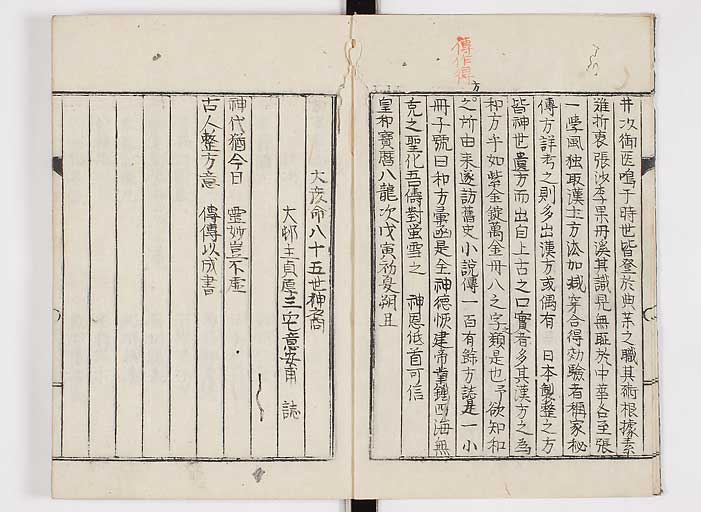 井以御医鳴于時世皆登於典薬之職其術根據素
難折衷張沙李杲丹溪其識見無耻於中華各至張
一學風独取漢土方法加蛾穿合得効驗者稱家秘
傳方詳考之則多出漢方或偶有 日本製整之方
皆神世貴方而出自上古之口實者多其漢方之為
和方乎如紫金錠萬金丹八之字類是也予欲知和
方之所由来遂訪舊史小說傳一百有餘方誌是一小
冊子號曰和方彙函是全神德恢建帝業鍾四海無
克之聖化吾儔對螢雪之 神恩低首可信
皇和寳暦八龍次戊寅初夏朔旦
大彦命八十五世神裔
大邨主貞厚三宅意安甫 誌
神代猶今日 靈妙豈不虚
古人整方意 傳傳以成書
傳作得